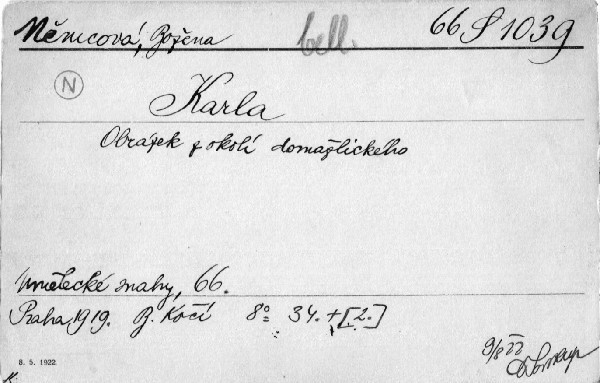 Němcová, Božena bell. 66 S 1039
N
Karla
Obrázek z okolí domažlického
Umělecké snahy, 66.
Praha, 1919. B. Kočí 8° 34. + [2.]
9/8 22
8. 5. 1922
K.